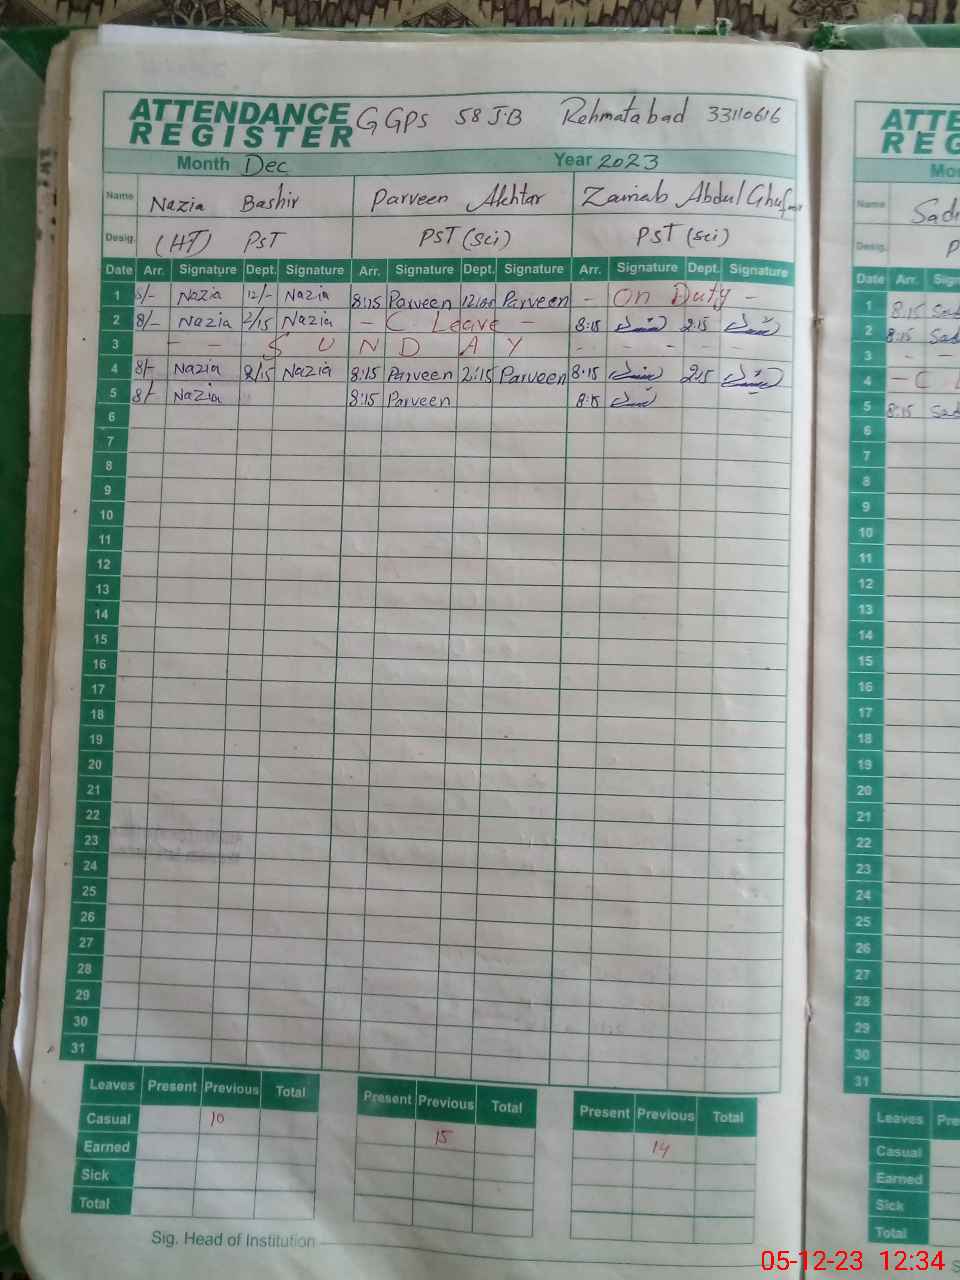 ATTENDANCE REGISTER GGPS 58 J.B Rehmatabad 33110616
Month Dec Year 2023
Name Nazia Bashir Parveen Akhtar Zainab Abdul Ghafoor
Desig. (HT) PST PST (Sci) PST (sci)
Date Arr. Signature Dept. Signature Arr. Signature Dept. Signature Arr. Signature Dept. Signature
1 8/- Nazia 12/- Nazia 8:15 Parveen Parveen - On Duty -
2 8/- Nazia 2/15 Nazia - C Leave - 8:15 2:15
3 - - S U N D A Y - - - - -
4 8/- Nazia 2/15 Nazia 8:15 Parveen 2:15 Parveen 8:15 2:15
5 8/- Nazia 8:15 Parveen 8:15
6
7
8
9
10
11
12
13
14
15
16
17
18
19
20
21
22
23
24
25
26
27
28
29
30
31
Leaves Present Previous Total Present Previous Total Present Previous Total
Casual 10 15 14
Earned
Sick
Total
Sig. Head of Institution
ATTE
REG
Mo
Name Sad
Desig. P
Date Arr. Sign
1 8:15 Sad
2 8:15 Sad
3 - -
4 - C L
5 8:15 Sad
6
7
8
9
10
11
12
13
14
15
16
17
18
19
20
21
22
23
24
25
26
27
28
29
30
31
Leaves Pre
Casual
Earned
Sick
Total
S
05-12-23 12:34